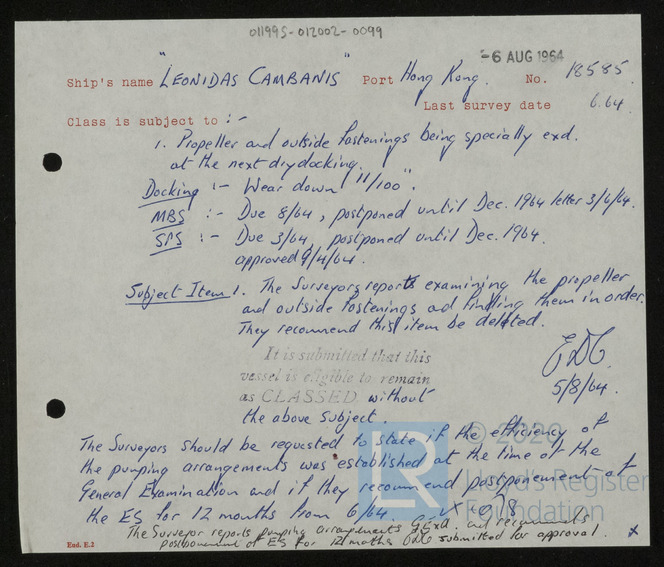 011995-012002-0099
-6 AUG 1964
Ship's name "LEONIDAS CAMBANIS" Port Hong Kong. No. 18585.
Last survey date 6.64.
Class is subject to :-
1. Propeller and outside fastenings being specially exd.
at the next drydocking.
Docking :- Wear down "11/100".
MBS :- Due 8/64, postponed until Dec. 1964 letter 3/6/64.
SPS :- Due 3/64, postponed until Dec. 1964.
approved 9/4/64.
Subject Item 1. The Surveyors reports examining the propeller
and outside fastenings and finding them in order.
They recommend this item be deleted.
It is submitted that this
vessel is eligible to remain
as CLASSED without
the above subject.
5/8/64.
The Surveyors should be requested to state if the efficiency of
the pumping arrangements was established at the time of the
General Examination and if they recommend postponement of
the ES for 12 months from 6/64.
The Surveyor reports pumping arrangements G.Exd. and recommends
postponement of ES for 12 months submitted for approval.
End. E.2
LR
© 2020
Lloyd's Register
Foundation